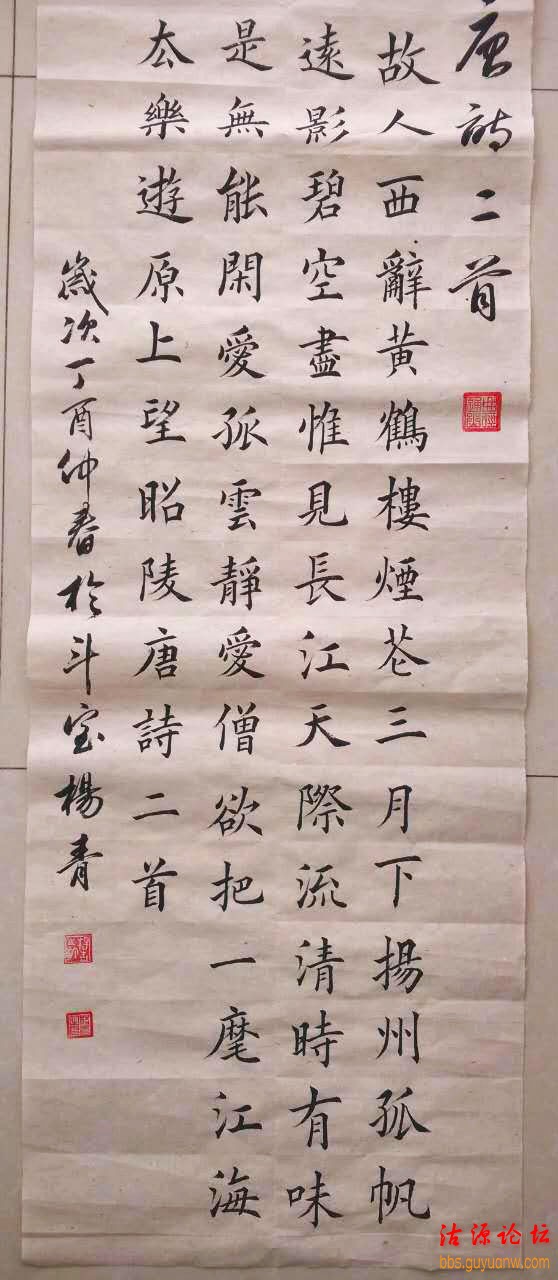 唐詩二首
故人西辭黃鶴樓煙花三月下揚州孤帆
遠影碧空盡惟見長江天際流清時有味
是無能閑愛孤雲靜愛僧欲把一麾江海
去樂遊原上望昭陵唐詩二首
歲次丁酉仲春於斗室楊青
沽源论坛
bbs.guyuanw.com